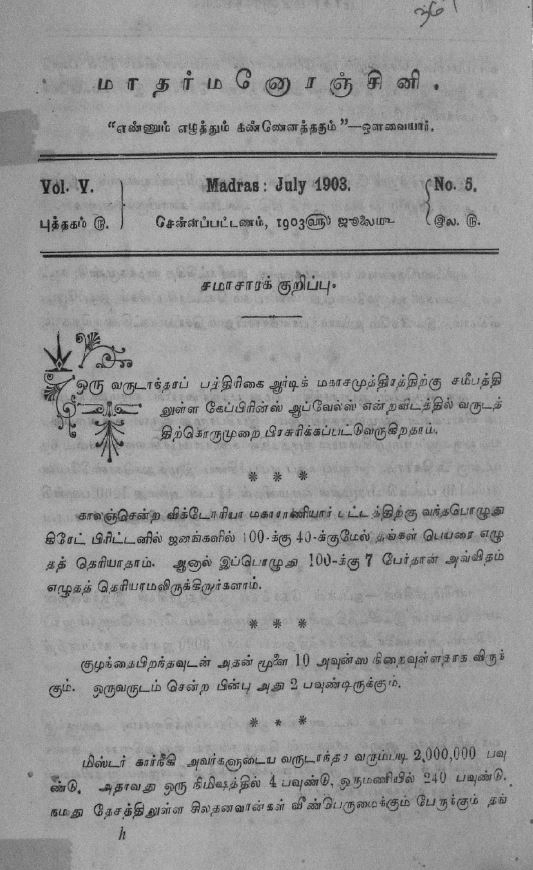 மாதர்மனோரஞ்சினி.
“எண்ணும் எழுத்தும் கண்ணெனத்தகும்”—ஔவையார்.
Vol. V. Madras: July 1903. No. 5.
புத்தகம் ௫. சென்னப்பட்டணம், 1903௵ ஜூலைமீ இல. ௫.
சமாசாரக் குறிப்பு.
ஒரு வருடாந்தரப் பத்திரிகை ஆர்டிக் மகாசமுத்திரத்திற்கு சமீபத்தி
லுள்ள கேப்பிரின்ஸ் ஆப்வேல்ஸ் என்றவிடத்தில் வருடத்
திற்கொருமுறை பிரசுரிக்கப்பட்டுவருகிறதாம்.
* * *
காலஞ்சென்ற விக்டோரியா மகாராணியார் பட்டத்திற்கு வந்தபொழுது
கிரேட் பிரிட்டனில் ஜனங்களில் 100-க்கு 40-க்குமேல் தங்கள் பெயரை எழு
தத் தெரியாதாம். ஆனால் இப்பொழுது 100-க்கு 7 பேர்தான் அவ்விதம்
எழுதத் தெரியாமலிருக்கிறார்களாம்.
* * *
குழந்தைபிறந்தவுடன் அதன் மூளை 10 அவுன்ஸ நிறைவுள்ளதாக விருக்
கும். ஒருவருடம் சென்ற பின்பு அது 2 பவுண்டிருக்கும்.
* * *
மிஸ்டர் கார்நீகி அவர்களுடைய வருடாந்தர வரும்படி 2,000,000 பவு
ண்டு. அதாவது ஒரு நிமிஷத்தில் 4 பவுண்டு, ஒருமணியில் 240 பவுண்டு.
நமது தேசத்திலுள்ள சிலதனவான்கள் வீண்பெருமைக்கும் பேருக்கும் தங்
h